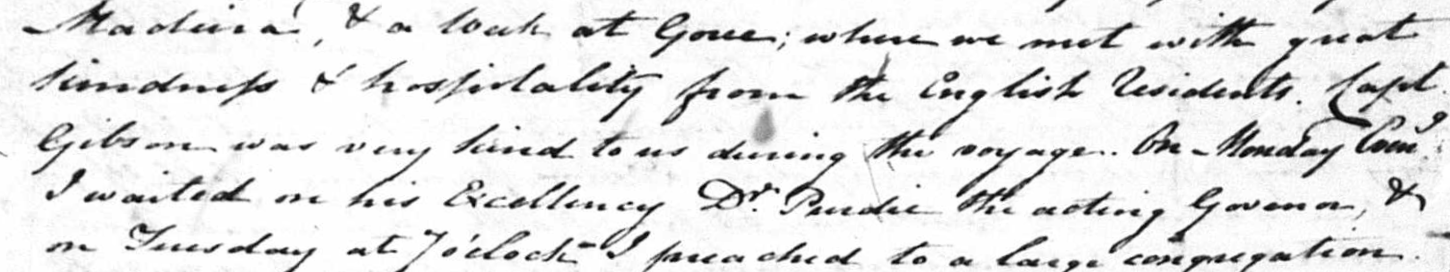 Madeira, & a week at Goree; where we met with great
kindness & hospitality from the English residents. Capt
Gibson was very kind to us during the voyage. On Monday Eveng
I waited on his Excellency Dr Purdie the acting Govenor, &
on Tuesday at 7 o'clock I preached to a large congregation.